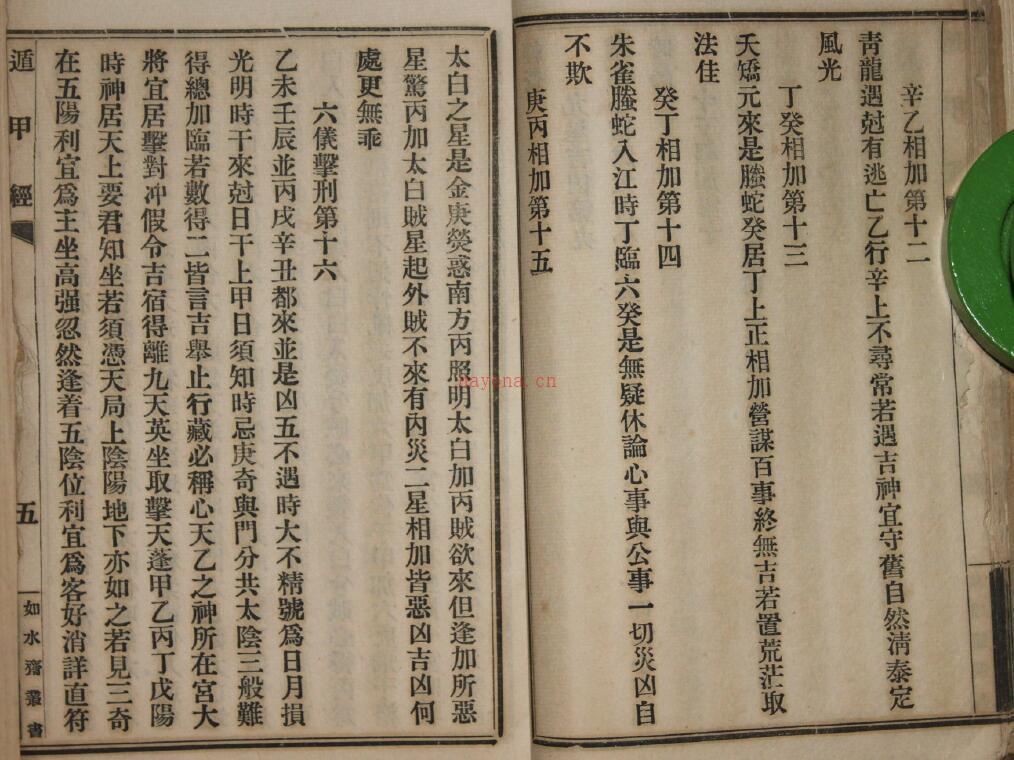 辛乙相加第十二
青龍遇尅有逃亡乙行辛上不尋常若遇吉神宜守舊自然淸泰定
風光
丁癸相加第十三
夭矯元來是螣蛇癸居丁上正相加營謀百事終無吉若置荒茫取
法佳
癸丁相加第十四
朱雀螣蛇入江時丁臨六癸是無疑休論心事與公事一切災凶自
不欺
庚丙相加第十五
太白之星是金庚熒惑南方丙照明太白加丙賊欲來但逢加所惡
星驚丙加太白賊星起外賊不來有內災二星相加皆惡凶吉凶何
處更無乖
六儀擊刑第十六
乙未壬辰並丙戌辛丑都來並是凶五不遇時大不精號爲日月損
光明時干來尅日干上甲日須知時忌庚奇與門分共太陰三般難
得總加臨若數得二皆言吉舉止行藏必稱心天乙之神所在宮大
將宜居擊對冲假令吉宿得離九天英坐取擊天蓬甲乙丙丁戊陽
時神居天上要君知坐若須憑天局上陰陽地下亦如之若見三奇
在五陽利宜爲主坐高强忽然逢着五陰位利宜爲客好消詳直符
遁甲經
五
如水齋叢書
nayona.cn